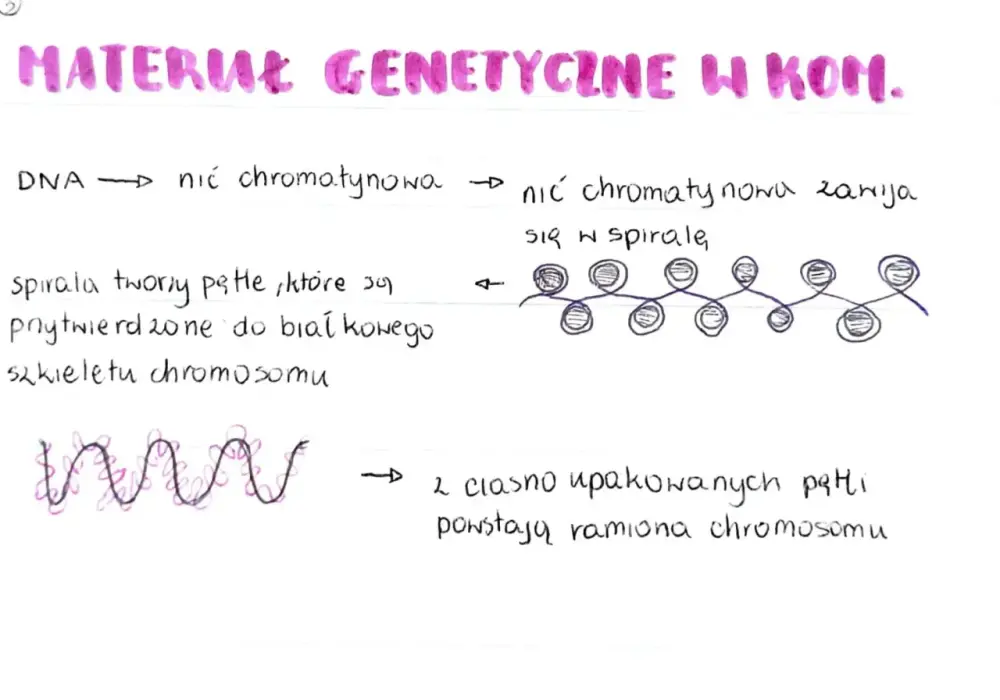 2
MATERIAŁ GENETYCZNE W KOM.
DNA → nić chromatynowa → nić chromatynowa zawija
się w spiralę
spirala tworzy pętle, które są ←
przytwierdzone do białkowego
szkieletu chromosomu
→ z ciasno upakowanych pętli
powstają ramiona chromosomu